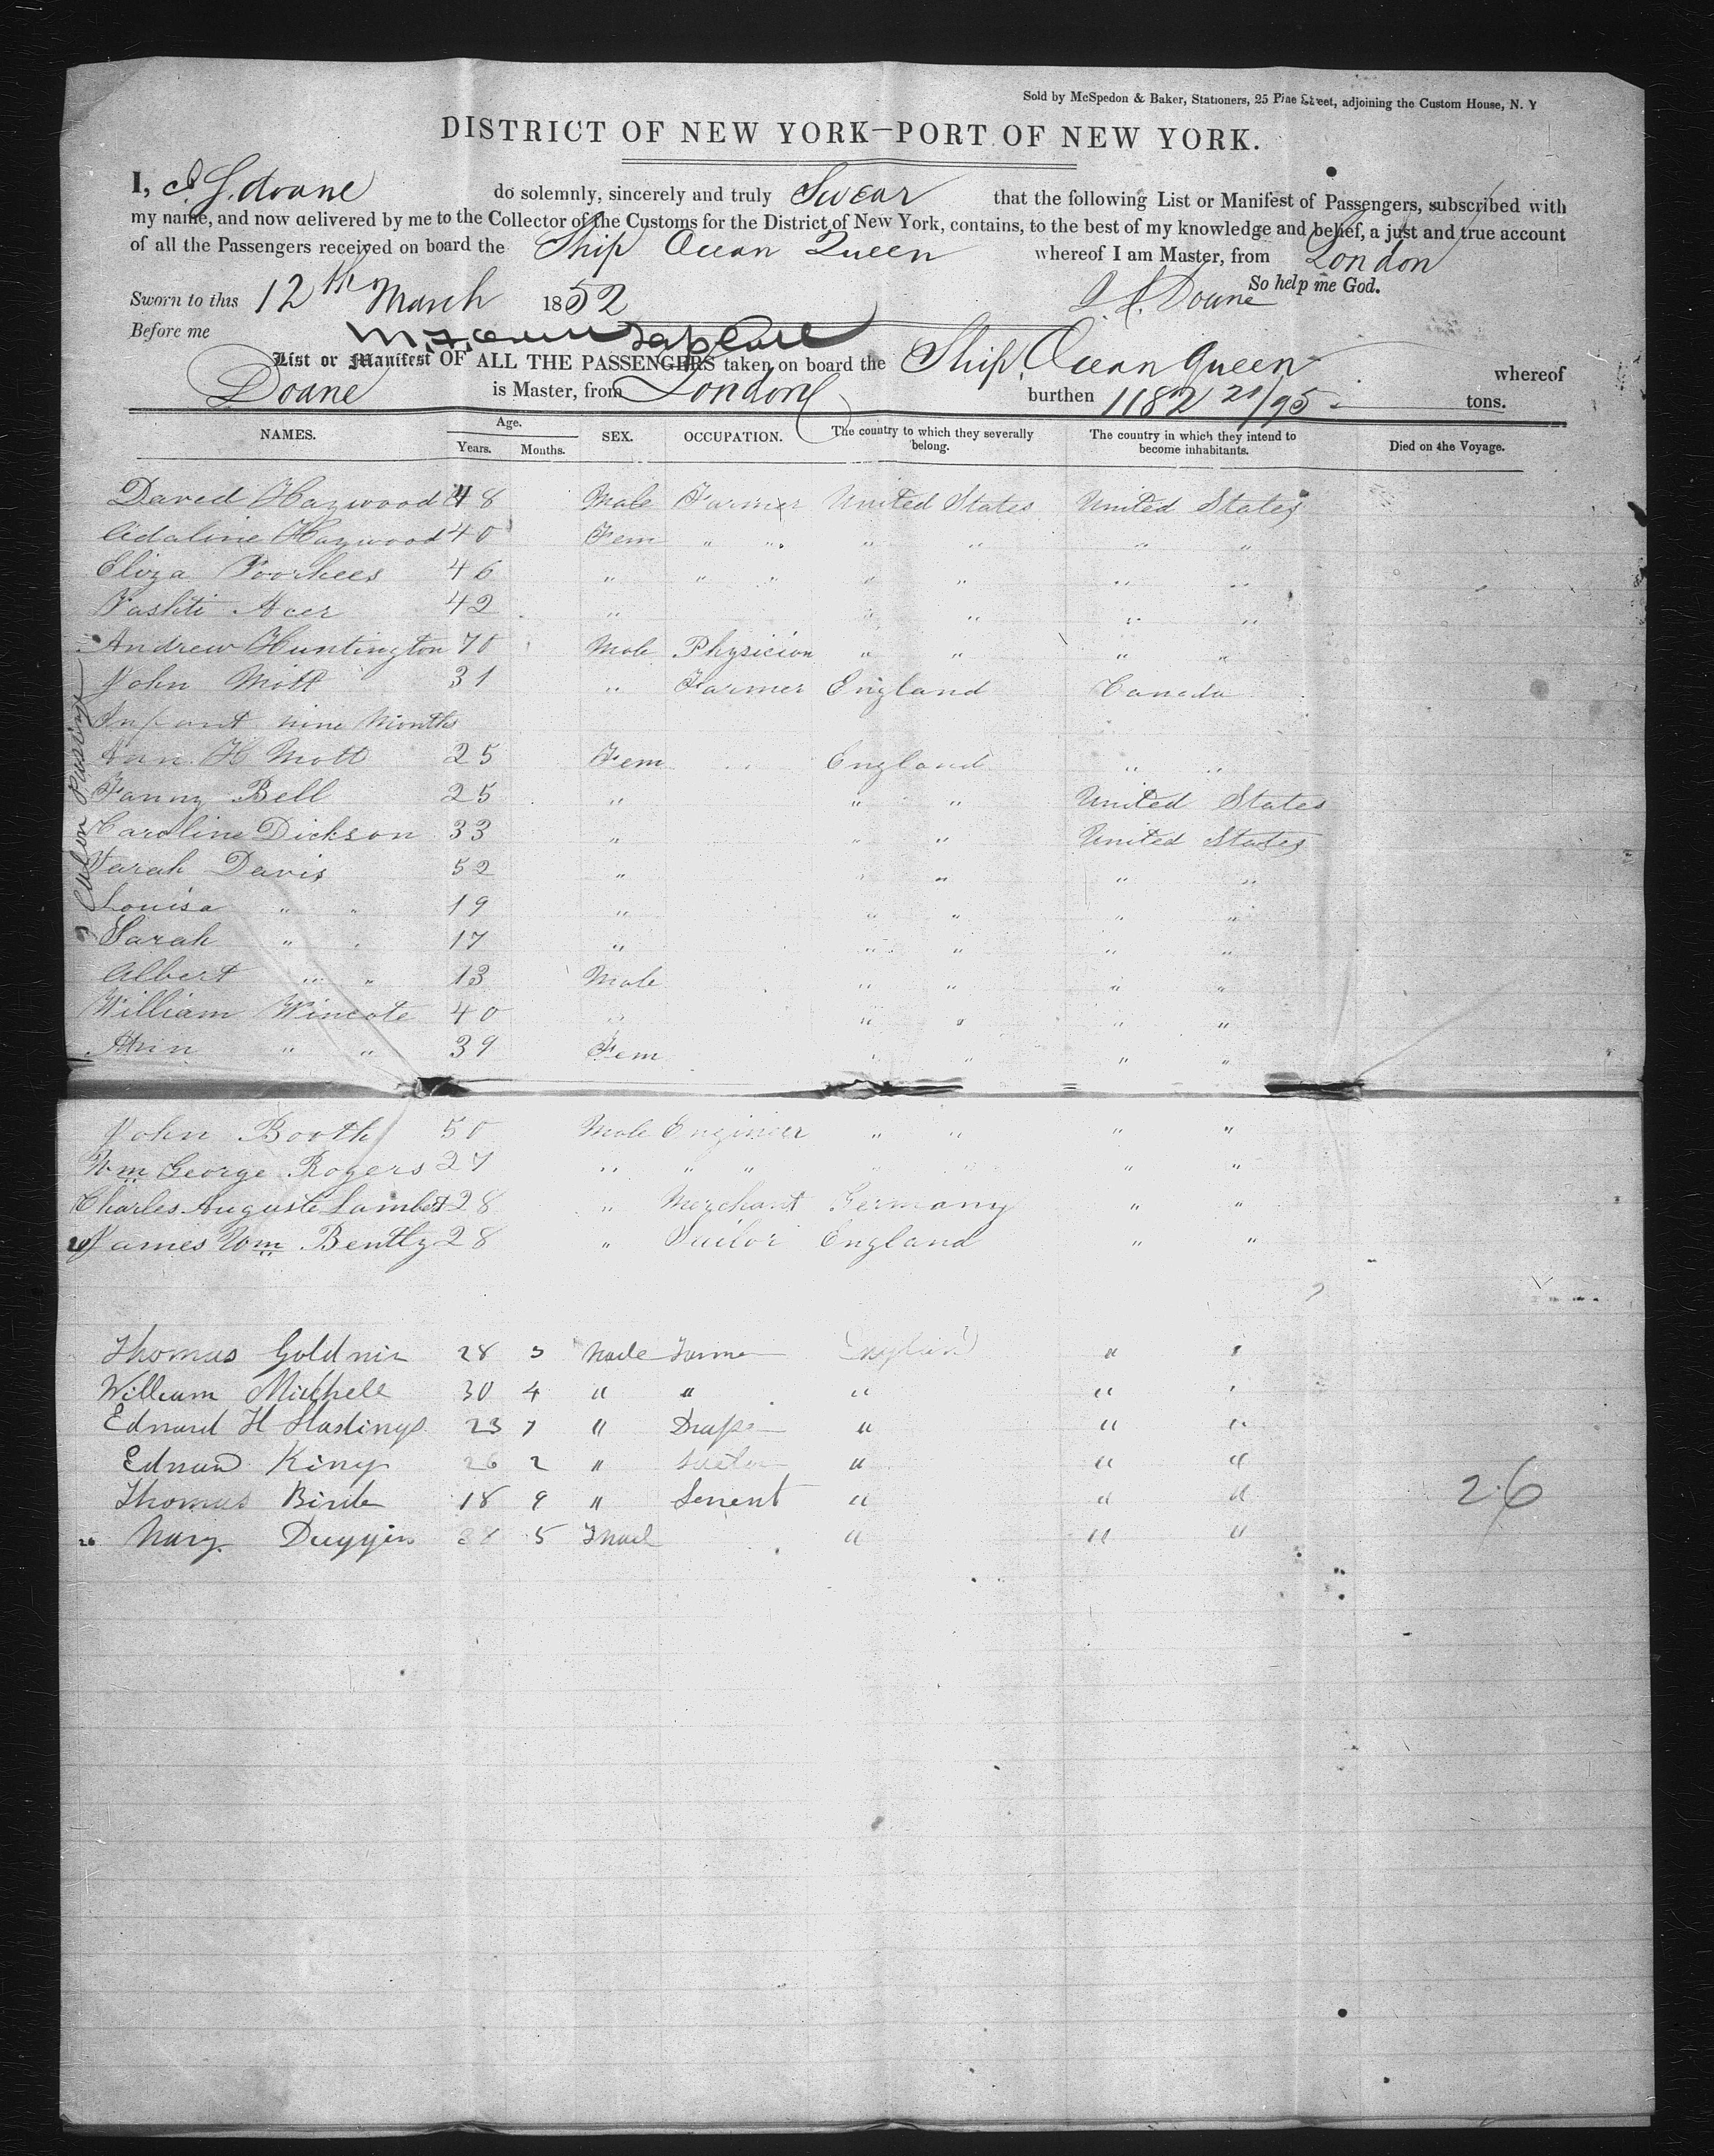 Sold by McSpedon & Baker, Stationers, 25 Pine Street, adjoining the Custom House, N. Y
DISTRICT OF NEW YORK—PORT OF NEW YORK.
I, Doane do solemnly, sincerely and truly Swear that the following List or Manifest of Passengers, subscribed with
my name, and now delivered by me to the Collector of the Customs for the District of New York, contains, to the best of my knowledge and belief, a just and true account
of all the Passengers received on board the Ship Ocean Queen whereof I am Master, from London
So help me God.
Sworn to this 12th March 1852 Doane
Before me
List or Manifest OF ALL THE PASSENGERS taken on board the Ship Ocean Queen whereof
Doane is Master, from London burthen 1182 21/95 tons.
NAMES. Age. Years. Months. SEX. OCCUPATION. The country to which they severally belong. The country in which they intend to become inhabitants. Died on the Voyage.
David Haywood 48 Male Farmer United States United States
Adaline Haywood 40 Fem " " " " " "
Eliza Voorhees 46 " " " " " " "
Vashti Acer 42 " " " " "
Andrew Huntington 70 Male Physician " " " "
John Mott 31 " Farmer England Canada
Infant nine Months
Ann H Mott 25 Fem " " England " "
Fanny Bell 25 " " " United States
Caroline Dickson 33 " " " United States
Sarah Davis 52 " " " " "
Louisa " " 19 " " " " "
Sarah " " 17 " " " " "
Albert " " 13 Male " " " "
William Wincote 40 " " " " "
Ann " " 39 Fem " " " "
John Booth 50 Male Engineer " " " "
Wm George Rogers 27 " " " " " "
Charles Auguste Lambert 28 " Merchant Germany " "
20 James Wm Bently 28 " Tailor England " "
Thomas 28 3 Male Farmer England " "
William Mitchell 30 4 " " " " "
Edward H Hastings 23 7 " Draper " " "
Edward King 26 2 " " " "
Thomas 18 9 " Servent " " "
26 Mary Duggin 5 " " "
26
Cabin Passengers